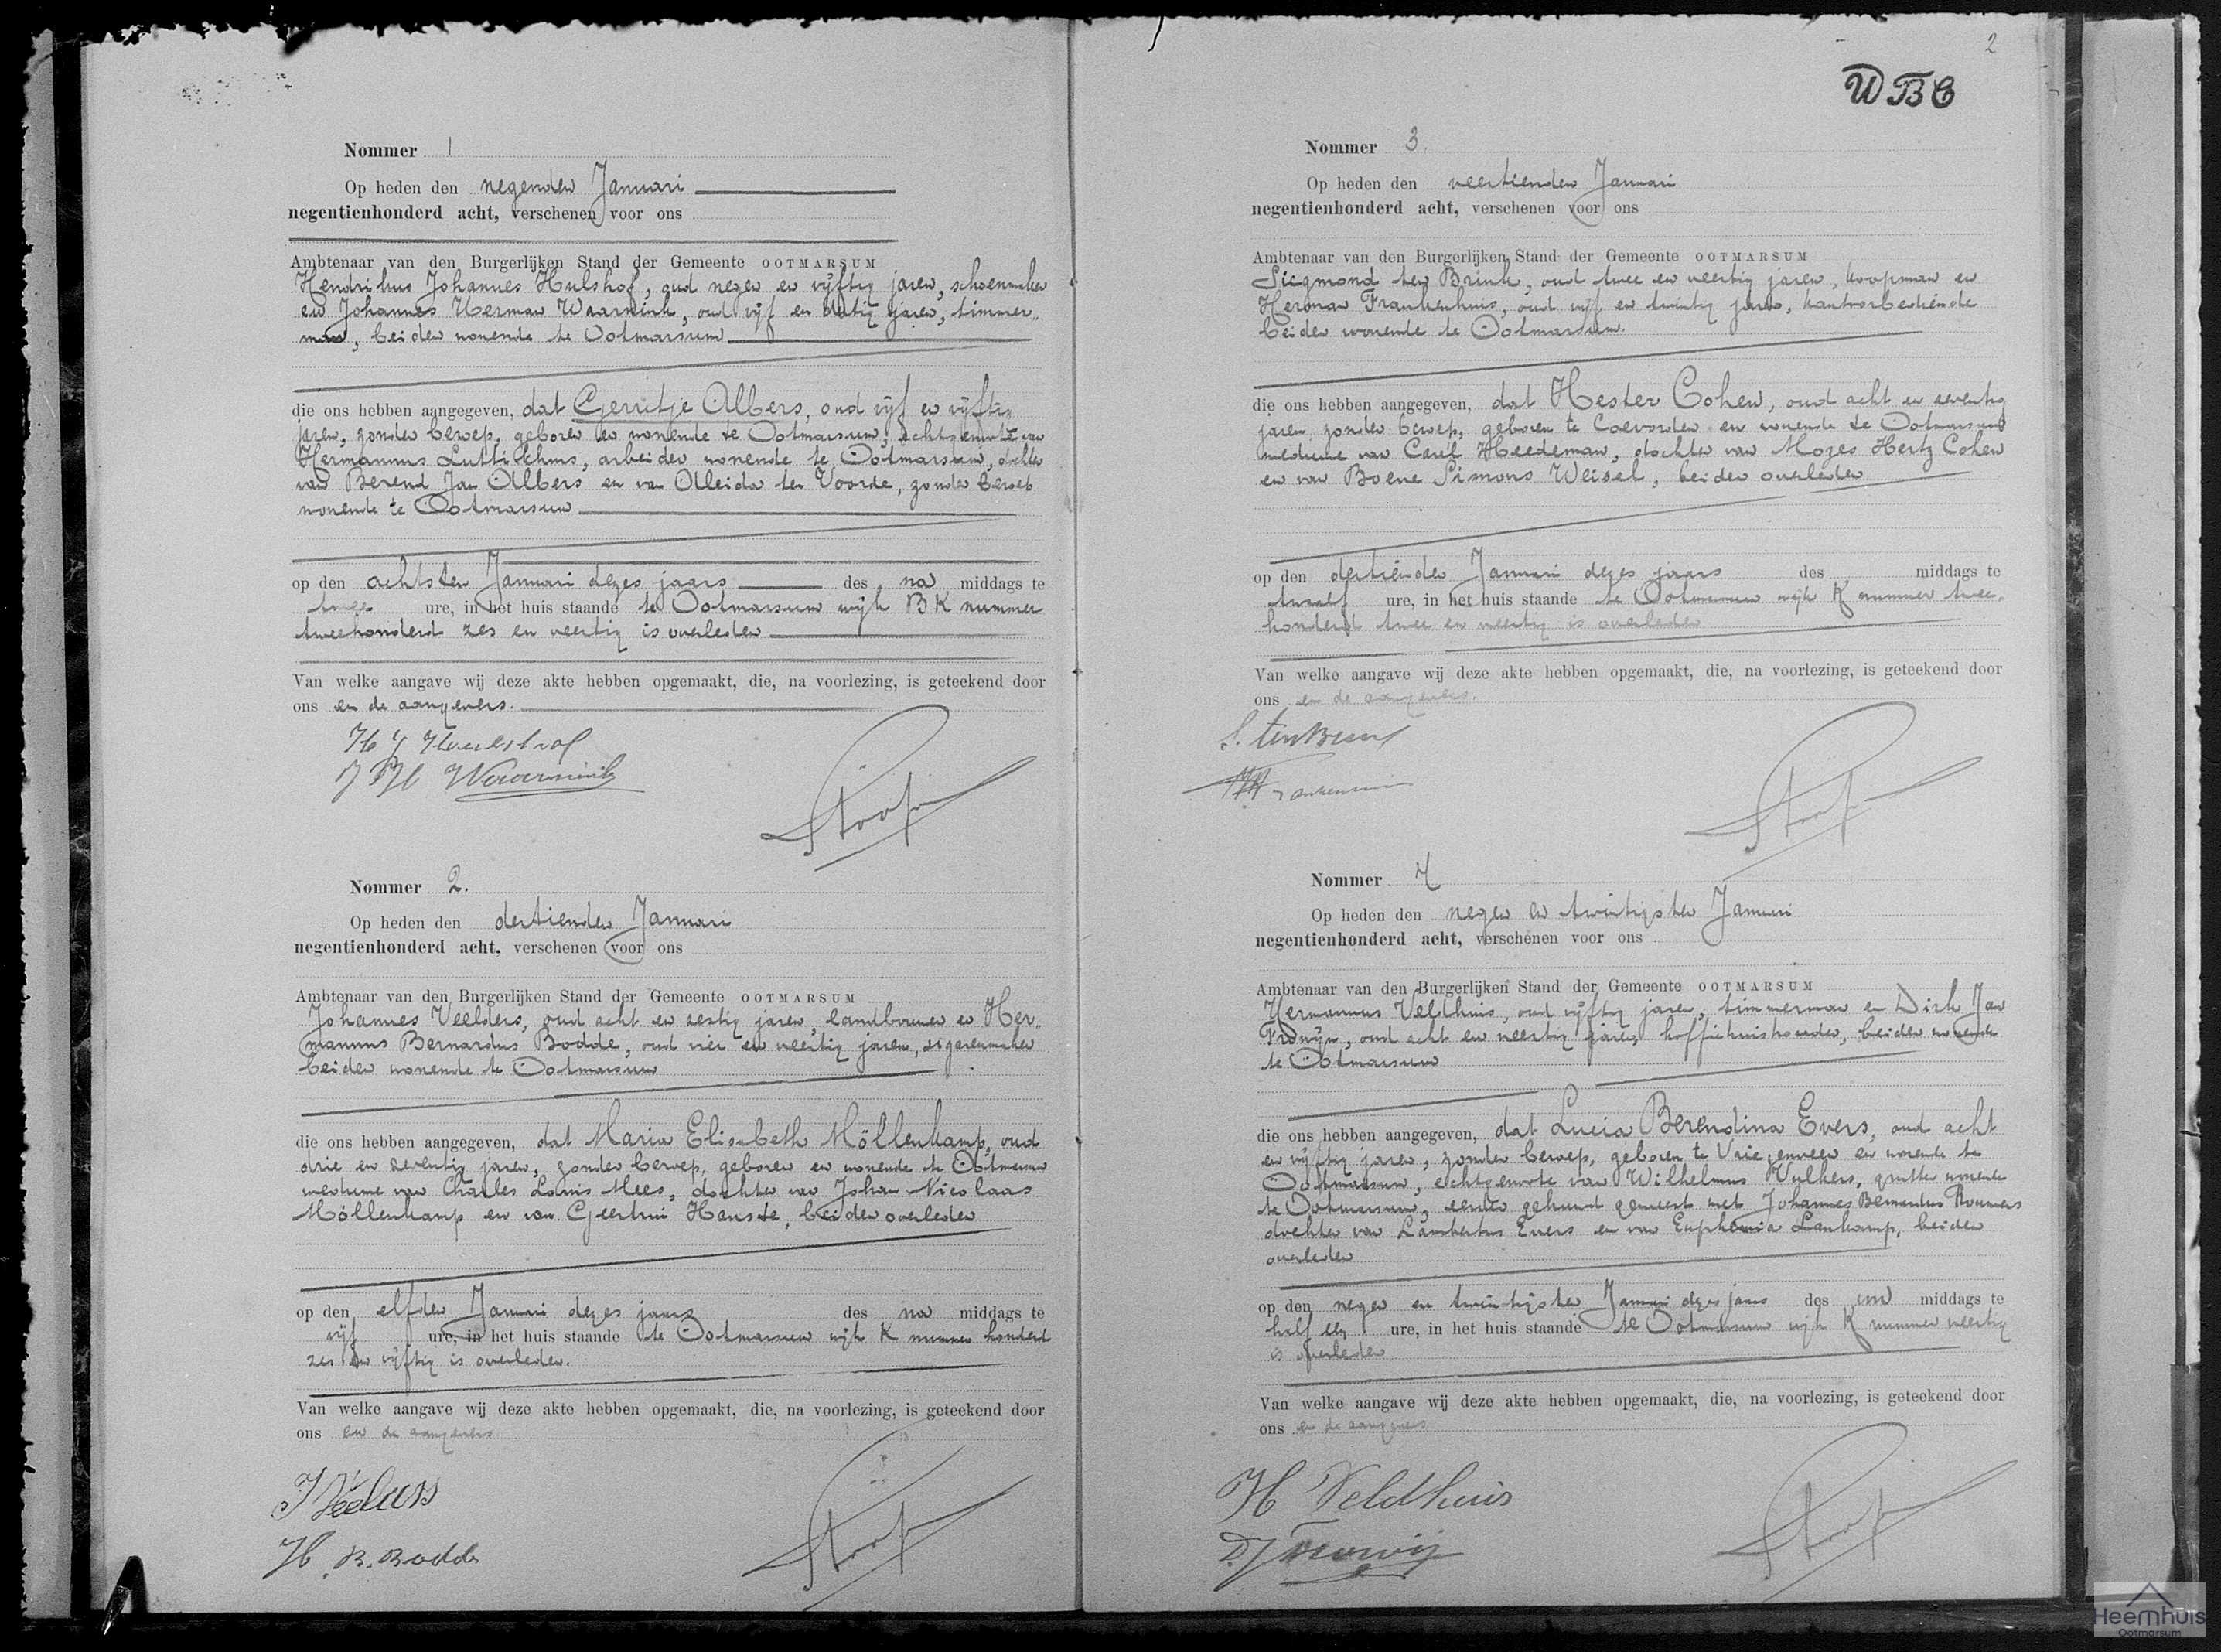 Nommer 1
Op heden den negenden Januari
negentienhonderd acht, verschenen voor ons
Ambtenaar van den Burgerlijken Stand der Gemeente OOTMARSUM
Hendrikus Johannes Hulshof, oud negen en vijftig jaren, schoenmaker
en Johannes Herman Waarnink, oud vijf en dertig jaren, timmer-
man, beiden wonende te Ootmarsum
die ons hebben aangegeven, dat Gerritje Albers, oud vijf en vijftig
jaren, zonder beroep, geboren en wonende te Ootmarsum, echtgenoote van
Hermannus Luttikhuis, arbeider wonende te Ootmarsum, dochter
van Berend Jan Albers en van Aleida ten Voorde, zonder beroep
wonende te Ootmarsum
op den achtsten Januari dezes jaars des na middags te
twee ure, in het huis staande te Ootmarsum wijk BK nummer
tweehonderd zes en veertig is overleden
Van welke aangave wij deze akte hebben opgemaakt, die, na voorlezing, is geteekend door
ons en de aangevers.
H J Hulshof
J H Waarnink
Stoop
Nommer 2.
Op heden den dertienden Januari
negentienhonderd acht, verschenen voor ons
Ambtenaar van den Burgerlijken Stand der Gemeente OOTMARSUM
Johannes Veelders, oud acht en zestig jaren, landbouwer en Her-
mannus Bernardus Bodde, oud vier en veertig jaren, sigarenmaker
beiden wonende te Ootmarsum
die ons hebben aangegeven, dat Maria Elisabeth Möllenkamp, oud
drie en zeventig jaren, zonder beroep, geboren en wonende te Ootmarsum
weduwe van Charles Louis Mees, dochter van Johan Nicolaas
Möllenkamp en van Geertrui Hanste, beiden overleden
op den elfden Januari dezes jaars des na middags te
vijf ure, in het huis staande te Ootmarsum wijk K nummer honderd
zes en vijftig is overleden.
Van welke aangave wij deze akte hebben opgemaakt, die, na voorlezing, is geteekend door
ons en de aangevers
J Veelders
H. B. Bodde
Stoop
2
WBC
Nommer 3.
Op heden den veertienden Januari
negentienhonderd acht, verschenen voor ons
Ambtenaar van den Burgerlijken Stand der Gemeente OOTMARSUM
Siegmond ten Brink, oud twee en veertig jaren, koopman en
Herman Frankenhuis, oud vijf en twintig jaren, kantoorbediende
beiden wonende te Ootmarsum.
die ons hebben aangegeven, dat Hester Cohen, oud acht en zeventig
jaren, zonder beroep, geboren te Coevorden en wonende te Ootmarsum
weduwe van Carel Heedeman, dochter van Mozes Hertz Cohen
en van Boene Simons Weisel, beiden overleden
op den dertienden Januari dezes jaars des middags te
twaalf ure, in het huis staande te Ootmarsum wijk K nummer twee-
honderd twee en veertig is overleden
Van welke aangave wij deze akte hebben opgemaakt, die, na voorlezing, is geteekend door
ons en de aangevers.
S. ten Brink
H Frankenhuis
Stoop
Nommer 4
Op heden den negen en twintigsten Januari
negentienhonderd acht, verschenen voor ons
Ambtenaar van den Burgerlijken Stand der Gemeente OOTMARSUM
Hermannus Veldhuis, oud vijftig jaren, timmerman en Dirk Jan
oud acht en veertig jaren, koffiehuishouder, beiden wonende
te Ootmarsum
die ons hebben aangegeven, dat Lucia Berendina Evers, oud acht
en vijftig jaren, zonder beroep, geboren te Vriezenveen en wonende te
Ootmarsum, echtgenoote van Wilhelmus wonende
te Ootmarsum, eerder gehuwd geweest met Johannes Bernardus
dochter van Lambertus Evers en van Euphemia Lankamp, beiden
overleden
op den negen en twintigsten Januari dezes jaars des voor middags te
half een ure, in het huis staande te Ootmarsum wijk K nummer veertig
is overleden
Van welke aangave wij deze akte hebben opgemaakt, die, na voorlezing, is geteekend door
ons en de aangevers
H Veldhuis
Stoop
Heemhuis
Ootmarsum